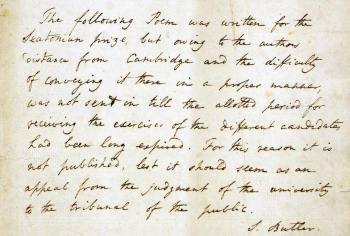 The following Poem was written for the
Seatonian prize, but owing to the authors
distance from Cambridge and the difficulty
of conveying it there in a proper manner,
was not sent in till the allotted period for
receiving the exercises of the different candidates
had been long expired. For this reason it is
not published, lest it should seem as an
appeal from the judgment of the university
to the tribunal of the public.
S. Butler.